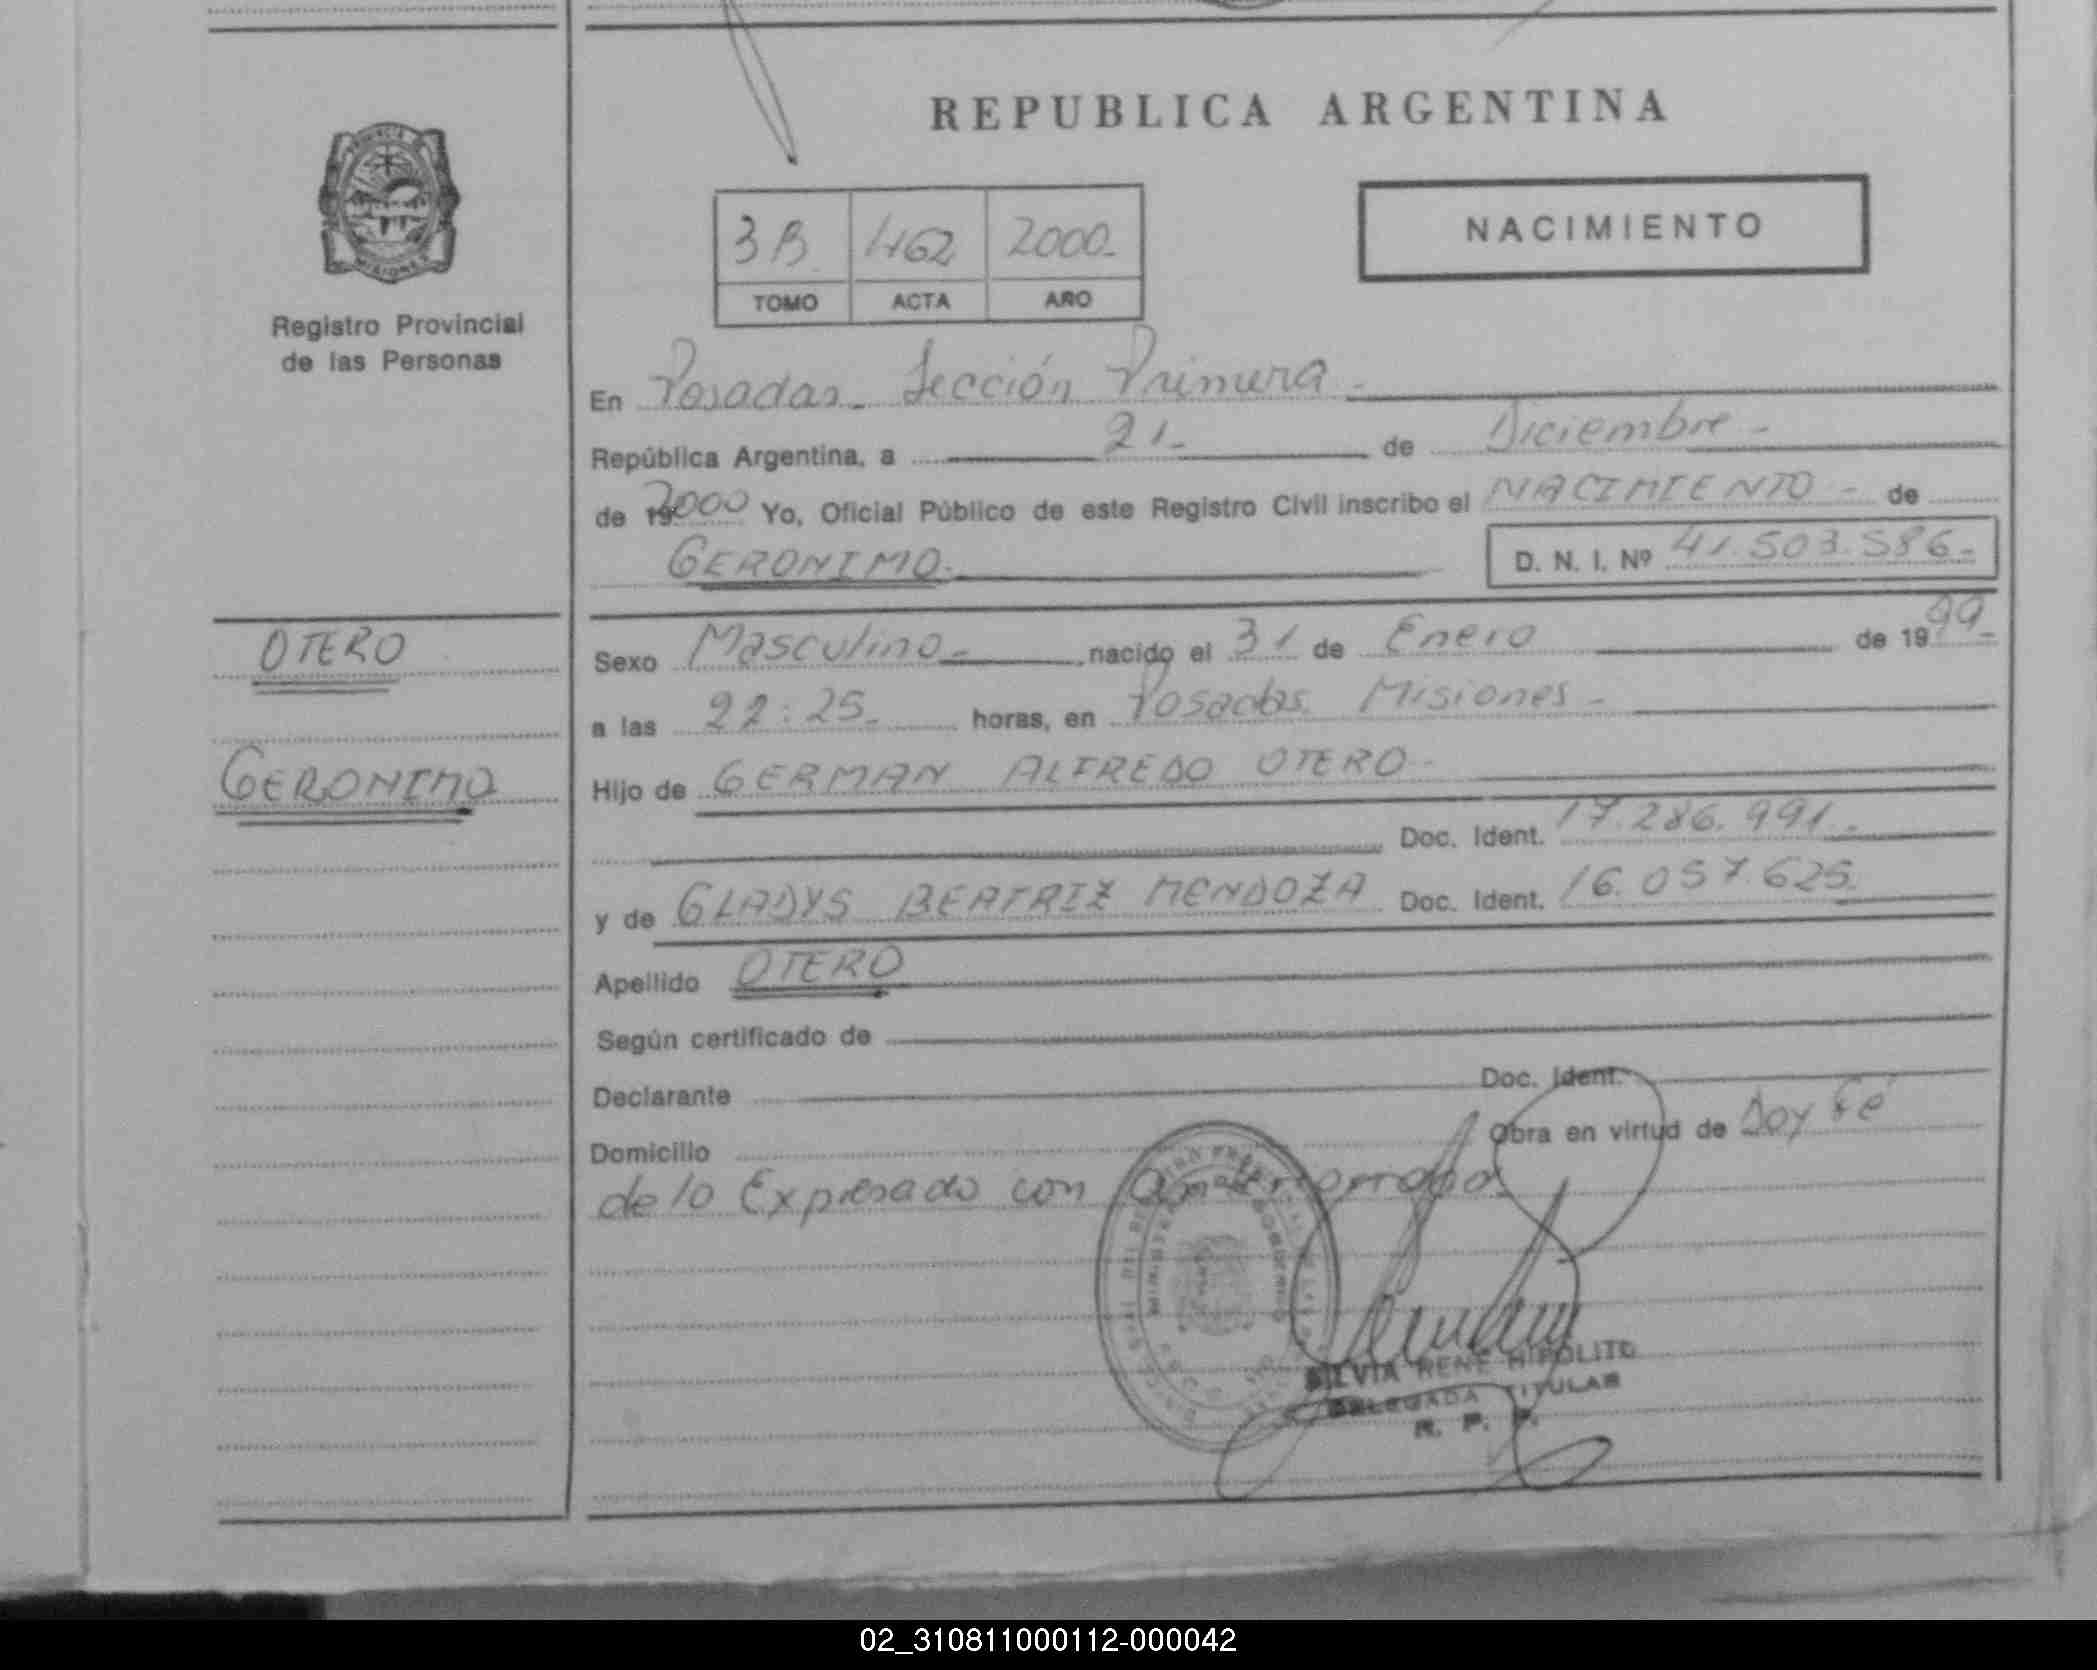 REPUBLICA ARGENTINA
PROVINCIA
MISIONES
Registro Provincial
de las Personas
NACIMIENTO
3B 462 2000-
TOMO ACTA AÑO
En Posadas. Sección Primera -
República Argentina, a 21- de Diciembre -
de 192000 Yo, Oficial Público de este Registro Civil inscribo el NACIMIENTO - de
GERONIMO.
D. N. I. Nº 41.503.586-
OTERO
Sexo Masculino- nacido el 31 de Enero de 1999-
a las 22:25- horas, en Posadas. Misiones -
GERONIMO
Hijo de GERMAN ALFREDO OTERO-
Doc. Ident. 17.286.991.-
y de GLADYS BEATRIZ MENDOZA Doc. Ident. 16.057.625.
Apellido OTERO
Según certificado de
Declarante Doc. Ident.
Domicilio Obra en virtud de Doy Fé
de lo Expresado con
SILVIA RENE HIPOLITO
DELEGADA TITULAR
R. P. P.
02_310811000112-000042